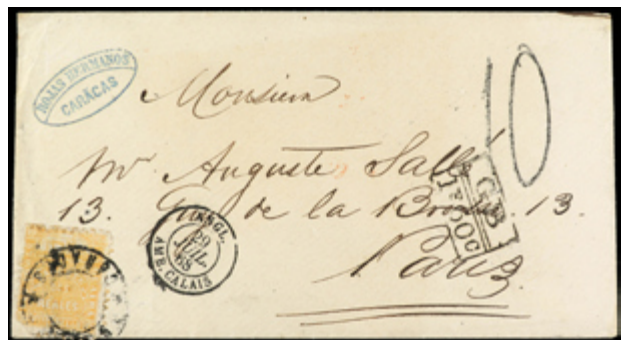 ROJAS HERMANOS
CARÁCAS
10
Monsieur
Mr Auguste Sallé
13. de la Brosse. 13.
Paris
ANGL.
29
JUIL
68
AMB. CALAIS
GB